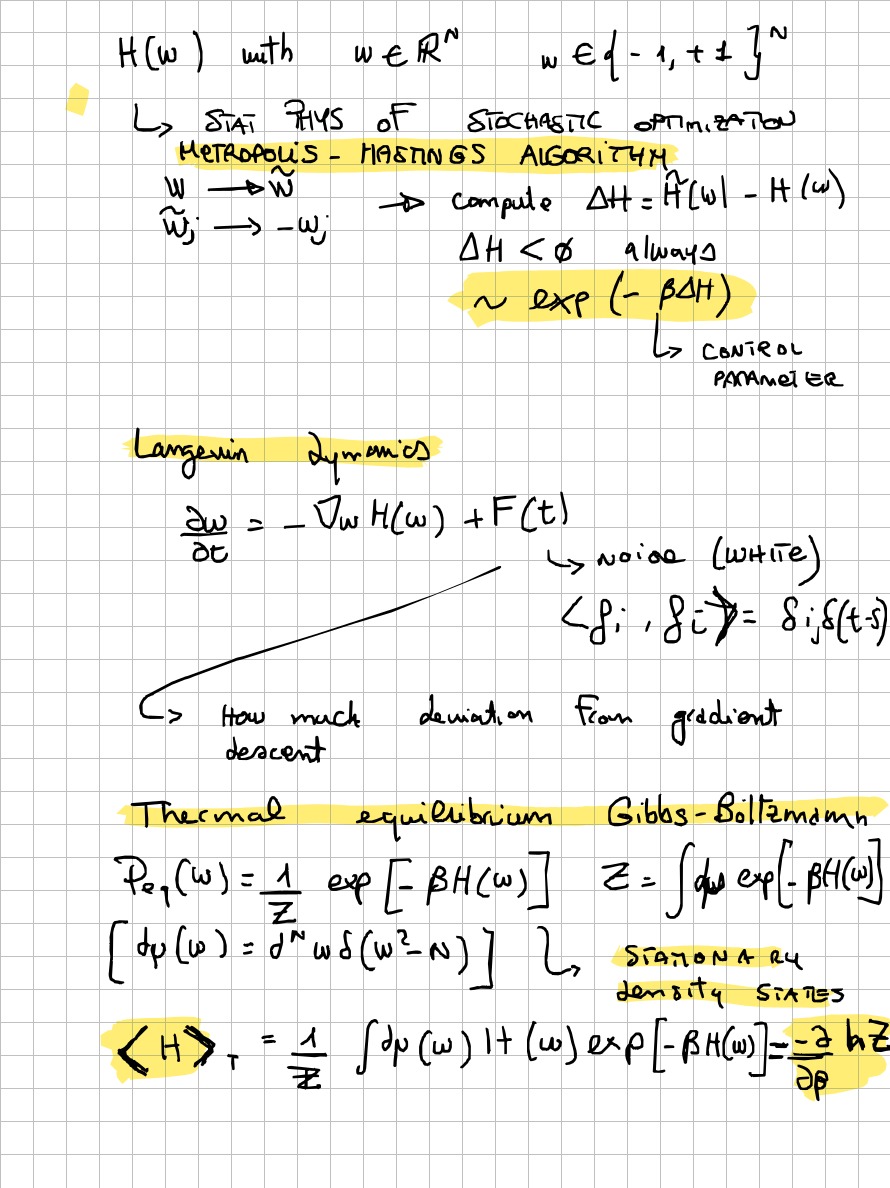 H(w) with w ∈ ℝ^N w ∈ {-1, +1}^N
↳ STAT PHYS OF STOCHASTIC OPTIMIZATION
METROPOLIS - HASTINGS ALGORITHM
w → w̃ → compute ΔH = H̃(w) - H(w)
w̃_j → -w_j
ΔH < ∅ always
~ exp (- βΔH)
↳ CONTROL
PARAMETER
Langevin dynamics
∂w/∂t = - ∇_w H(w) + F(t)
↳ NOISE (WHITE)
<f_i, f_i> = δ_i,δ(t-s)
↳ How much deviation from gradient
descent
Thermal equilibrium Gibbs-Boltzmann
P_eq(w) = 1/Z exp [- βH(w)] Z = ∫dμ exp[- βH(w)]
[dμ(w) = d^N w δ(w²-N)] ↳ STATIONARY
density STATES
<H>_T = 1/Z ∫dμ(w) H(w) exp [-βH(w)] = -∂/∂β ln Z